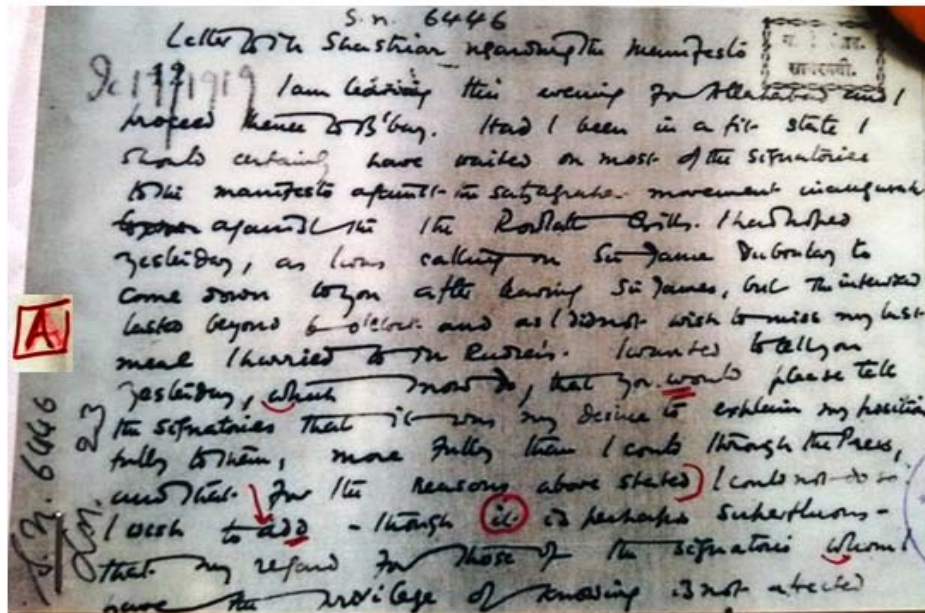 S.n. 6446
Letter to Mr Shastriar regarding the manifesto
1919 I am leaving this evening for Allahabad and I
proceed thence to B'bay. Had I been in a fit state I
should certainly have waited on most of the signatories
to the manifesto against the satyagraha movement inaugurated
against the the Rowlatt Bills. I had hoped
yesterday, as I was calling on Sir James Duboulay to
come down to you after leaving Sir James, but the interview
lasted beyond 6 o'clock and as I did not wish to miss my last
meal I hurried to Mr Rudra's. I wanted to tell you
yesterday, which I now do, that you would please tell
the signatories that it was my desire to explain my position
fully to them, more fully than I could through the Press,
and that for the reasons above stated I could not do so.
I wish to add - though it is perhaps superfluous -
that my regard for those of the signatories whom I
have the privilege of knowing is not affected
A
S.N. 6446
23